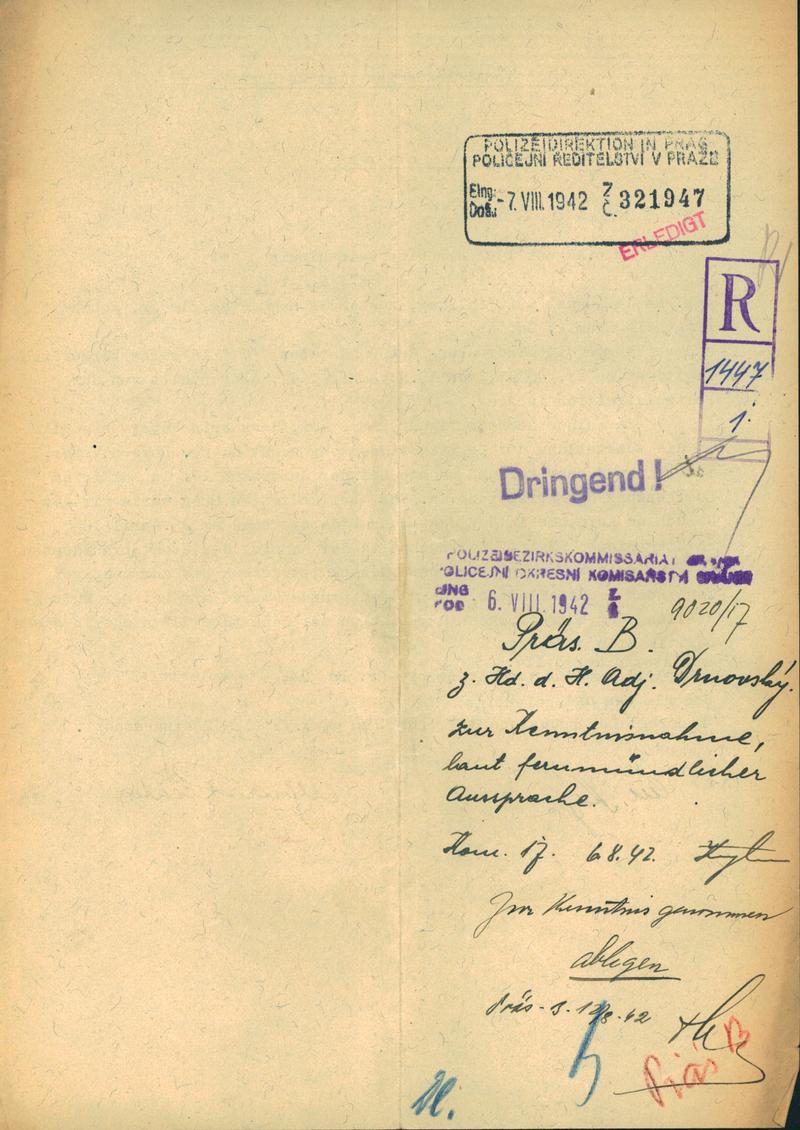 POLIZEIDIREKTION IN PRAG
POLICEJNÍ ŘEDITELSTVÍ V PRAZE
Eing.: Doš.: -7. VIII. 1942 Z. Č. 321947
ERLEDIGT
R
1447
j.
Dringend!
POLIZEIBEZIRKSKOMMISSARIAT
POLICEJNÍ OKRESNÍ KOMISAŘSTVÍ
6. VIII. 1942
9020/17
Präs. B.
z. Hd. d. H. Adj. Drnovský.
zur Kenntnisnahme,
laut fernmündlicher
Aussprache.
Kom. 17. 6.8.42.
Zur Kenntnis genommen
ablegen
Präs